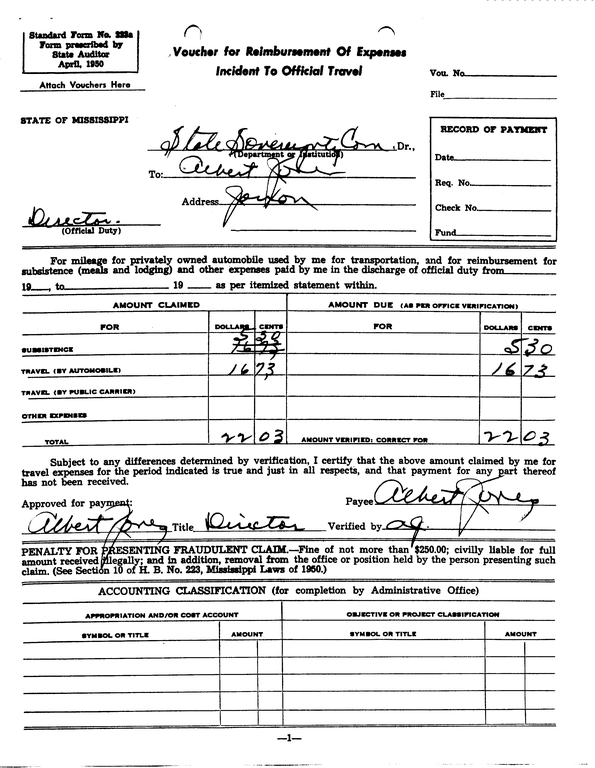 Standard Form No. 223a
Form prescribed by
State Auditor
April, 1950
Attach Vouchers Here
Voucher for Reimbursement Of Expenses
Incident To Official Travel
Vou. No.
File
STATE OF MISSISSIPPI
State Sovereignty Com, Dr.,
(Department or Institution)
To: Albert Jones
Address
Director.
(Official Duty)
RECORD OF PAYMENT
Date
Req. No.
Check No.
Fund
For mileage for privately owned automobile used by me for transportation, and for reimbursement for
subsistence (meals and lodging) and other expenses paid by me in the discharge of official duty from
19___, to___ 19___ as per itemized statement within.
AMOUNT CLAIMED AMOUNT DUE (AS PER OFFICE VERIFICATION)
FOR DOLLARS CENTS FOR DOLLARS CENTS
5 30
SUBSISTENCE 16 73 5 30
TRAVEL (BY AUTOMOBILE) 16 73 16 73
TRAVEL (BY PUBLIC CARRIER)
OTHER EXPENSES
TOTAL 22 03 AMOUNT VERIFIED: CORRECT FOR 22 03
Subject to any differences determined by verification, I certify that the above amount claimed by me for
travel expenses for the period indicated is true and just in all respects, and that payment for any part thereof
has not been received.
Payee Albert Jones
Approved for payment:
Albert Jones Title Director Verified by aj.
PENALTY FOR PRESENTING FRAUDULENT CLAIM.—Fine of not more than $250.00; civilly liable for full
amount received illegally; and in addition, removal from the office or position held by the person presenting such
claim. (See Section 10 of H. B. No. 223, Mississippi Laws of 1950.)
ACCOUNTING CLASSIFICATION (for completion by Administrative Office)
APPROPRIATION AND/OR COST ACCOUNT OBJECTIVE OR PROJECT CLASSIFICATION
SYMBOL OR TITLE AMOUNT SYMBOL OR TITLE AMOUNT
—1—